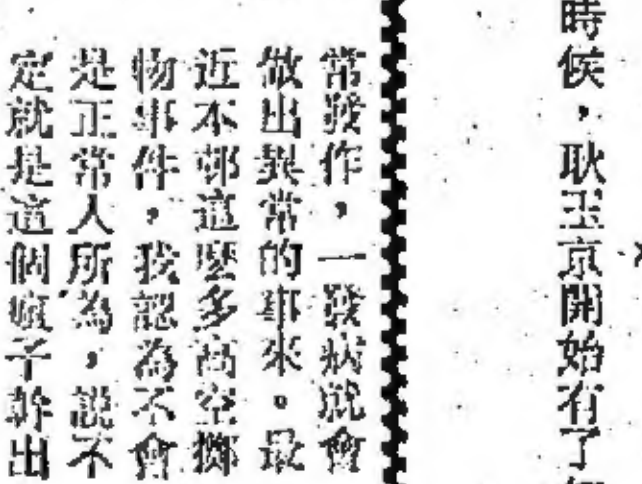 時候，耿玉京開始有了
常發作，一發病就會
做出異常的事來。最
近本邨這麼多高空擲
物事件，我認為不會
是正常人所為，說不
定就是這個瘋子幹出